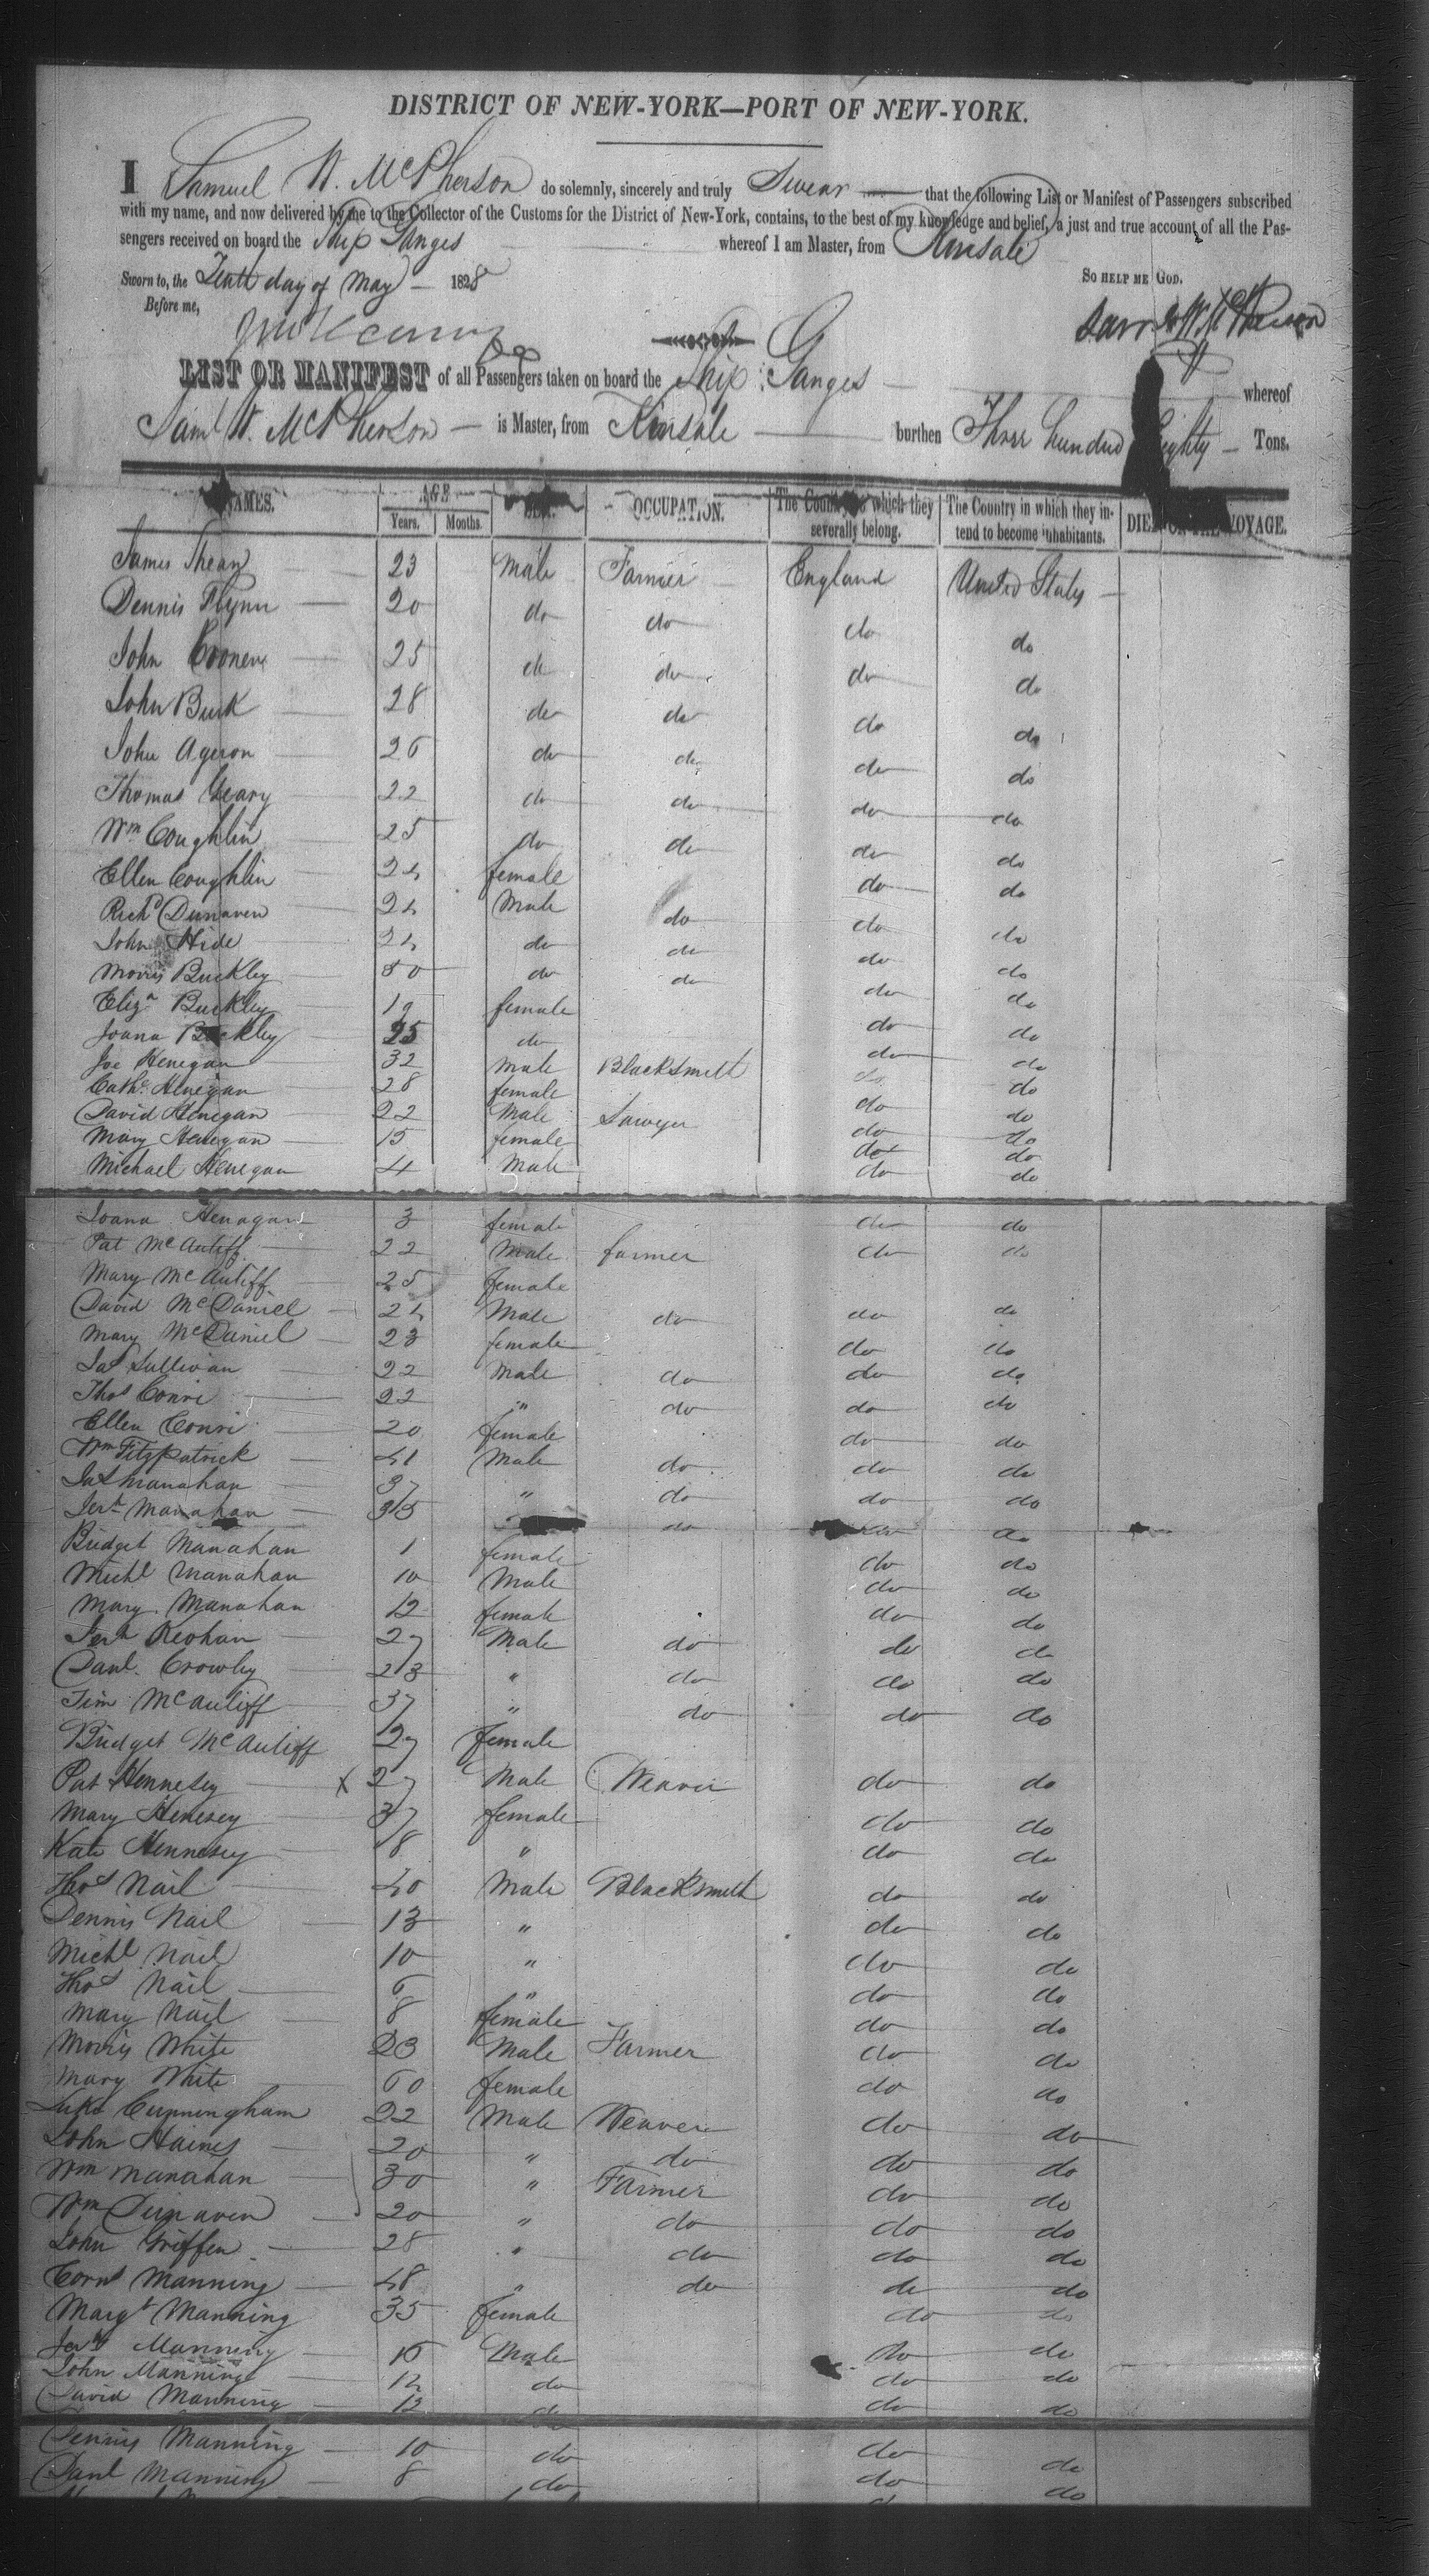 DISTRICT OF NEW-YORK—PORT OF NEW-YORK.
I Samuel W. McPherson do solemnly, sincerely and truly Swear that the following List or Manifest of Passengers subscribed
with my name, and now delivered by me to the Collector of the Customs for the District of New-York, contains, to the best of my knowledge and belief, a just and true account of all the Pas-
sengers received on board the Ship Ganges whereof I am Master, from Kinsale
Sworn to, the Tenth day of May 1828 SO HELP ME GOD.
Before me,
Saml W. McPherson
LIST OR MANIFEST of all Passengers taken on board the Ship Ganges whereof
Saml W. McPherson is Master, from Kinsale burthen Three hundred Eighty Tons.
NAMES. AGE SEX. OCCUPATION. The Country to which they severally belong. The Country in which they in-tend to become inhabitants. DIED ON THE VOYAGE.
Years. Months.
James 23 Male Farmer England United States
Dennis Flynn 20 do do do do
John 25 do do do do
John Burk 28 do do do do
John Ageron 26 do do do do
Thomas Geary 22 do do do do
Wm Coughlin 25 do do do do
Ellen Coughlin 24 female do do
Richd Dunaven 24 Male do do do
John Hide 24 do do do do
Morris Buckley 50 do do do do
Eliza Buckley 19 female do do
Joana Buckley 25 do do do
Joe Henegan 32 Male Blacksmith do do
Cathe Henegan 28 female do do
David Henegan 22 Male Sawyer do do
Mary Henegan 15 female do do
Michael Henegan 4 Male do do
Joana Henagan 3 female do do
Pat McAuliff 22 Male farmer do do
Mary McAuliff 25 female
David McDaniel 24 Male do do do
Mary McDaniel 23 female do do
Jas Sullivan 22 Male do do do
Thos Conri 22 " do do do
Ellen Conri 20 female do do
Wm Fitzpatrick 41 Male do do do
Jas Manahan 37 " do do do
Jerh Manahan do do do
Bridget Manahan 1 female do do
Michl Manahan 10 Male do do
Mary Manahan 12 female do do
Jerh Keohan 27 Male do do do
Danl Crowley 23 " do do do
Tim McAuliff 37 " do do do
Bridget McAuliff 27 female
Pat Hennesey X 27 Male Weaver do do
Mary Henesey 37 female do do
Kate Hennesey 8 " do do
Thos Nail 40 Male Blacksmith do do
Dennis Nail 13 " do do
Michl Nail 10 " do do
Thos Nail 6 " do do
Mary Nail 8 female do do
Morris White 23 Male Farmer do do
Mary White 60 female do do
Luke Cunningham 22 Male Weaver do do
John Haines 20 " do do do
Wm Manahan 30 " Farmer do do
Wm Dunaven 20 " do do do
John Griffen 28 " do do do
Corns Manning 48 " do do do
Margt Manning 35 female do do
Jerh Manning 16 Male do do
John Manning 14 do do do
David Manning 12 do do do
Dennis Manning 10 do do do
Danl Manning 8 do do do